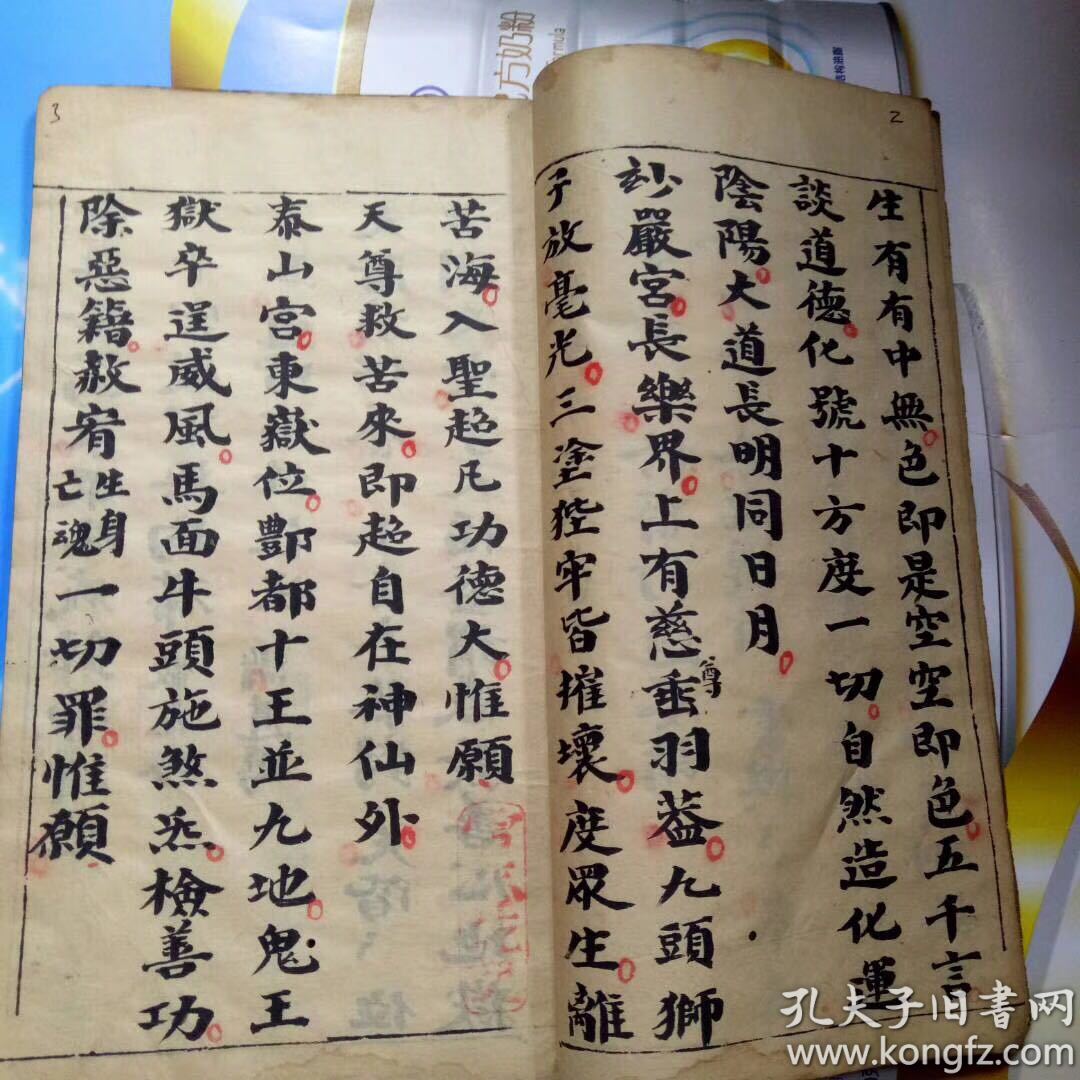 2
生有有中無色即是空空即色五千言
談道德化號十方度一切自然造化運
陰陽大道長明同日月
妙嚴宮長樂界上有慈尊垂羽蓋九頭獅
子放毫光三塗狴牢皆摧壞度眾生離
3
苦海入聖超凡功德大惟願
天尊救苦來即超自在神仙外
泰山宮東嶽位酆都十王並九地鬼王
獄卒逞威風馬面牛頭施煞炁檢善功
除惡籍赦宥生身亡魂一切罪惟願
方奶粉
孔夫子旧书网
www.kongfz.com